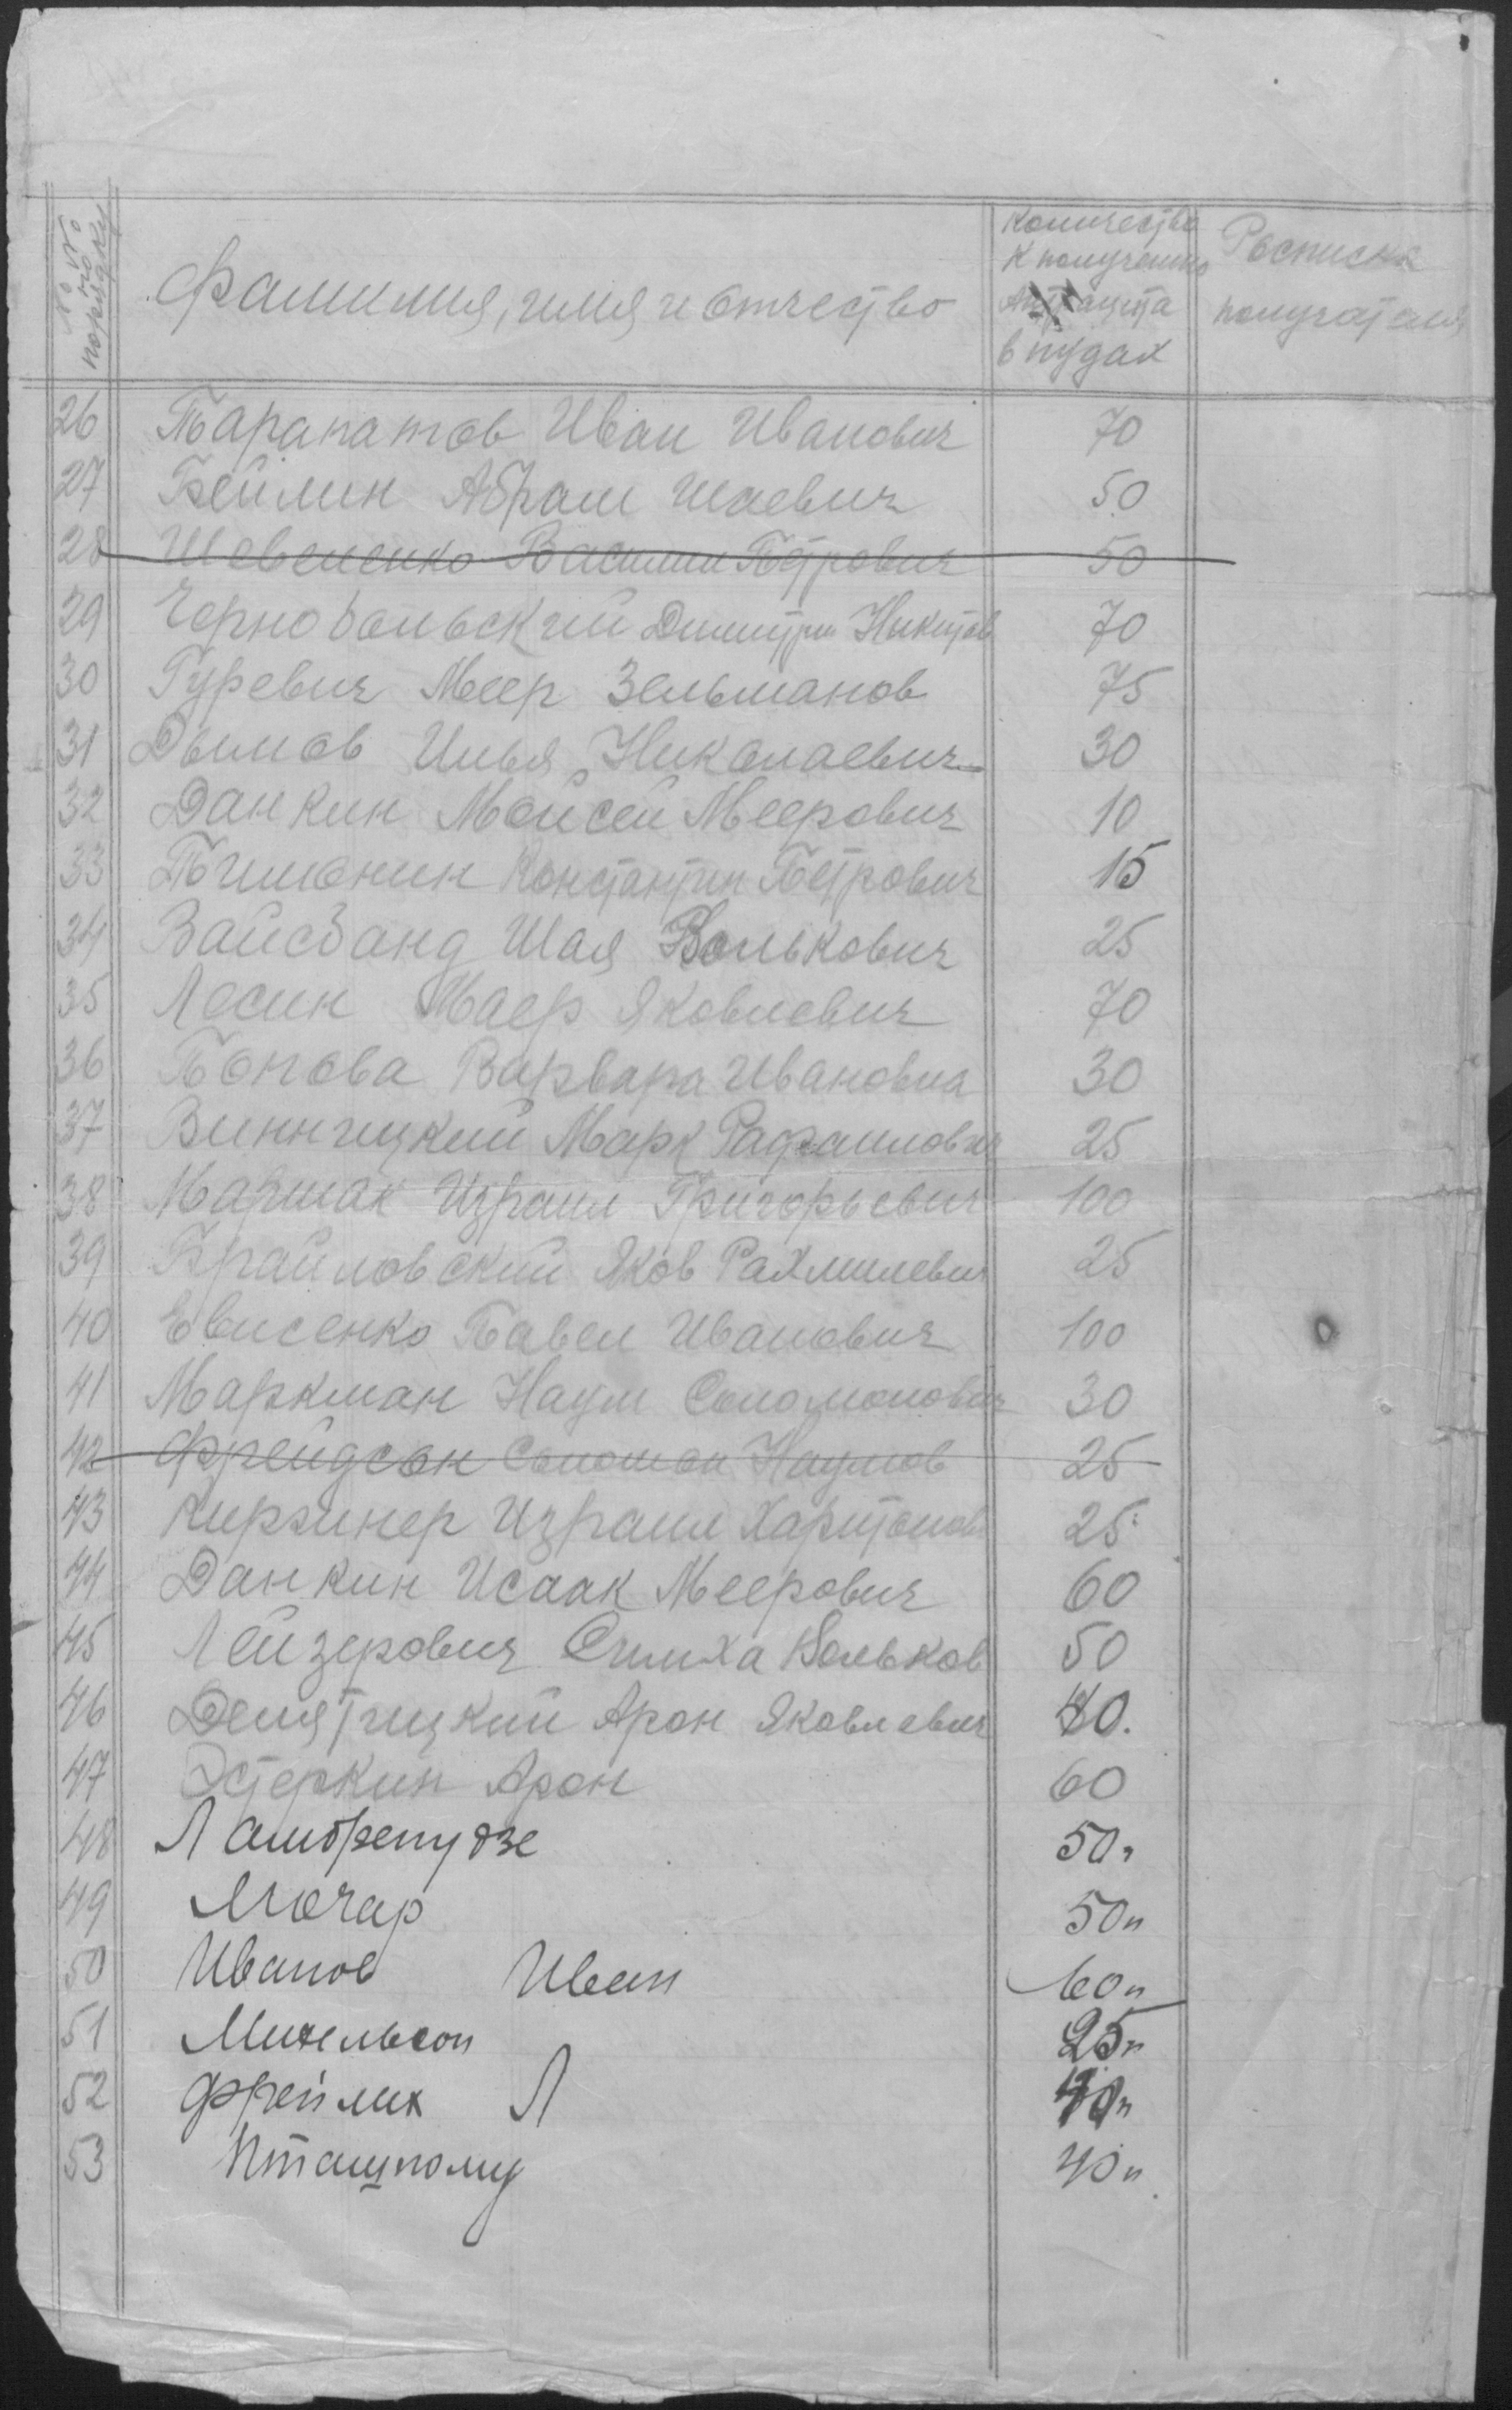 № № по порядку
Фамилия, имя и отчество
Количество к получению Антрацита в пудах
Росписка получателя
26 Парапатов Иван Иванович 70
27 Бейлин Абрам Шаевич 50
28 Шевеленко Василий Петрович 50
29 Чернобольский Димитри Никитов 70
30 Гуревич Меер Зельманов 75
31 Дымов Илья Николаевич 30
32 Данкин Мойсей Меерович 10
33 Пчимонин Константин Петрович 15
34 Вайсбанд Шая Волькович 25
35 Лесин Маер Яковлевич 70
36 Попова Варвара Ивановна 30
37 Винницкий Марк Рафаилович 25
38 Маршак Израил Григорьевич 100
39 Браиловский Яков Рахмилевич 25
40 Евисенко Павел Иванович 100
41 Маркман Наум Соломонович 30
42 Фрейдсон Соломон Наумов 25
43 Киржнер Израил Харитонов 25
44 Данкин Исаак Меерович 60
45 Лейзерович Симха Вольков 50
46 Арон Яковлевич 40.
47 Эстеркин Арон 60
48 50п
49 Мочар 50п
50 Иванов Иван 60п
51 Михельсон 25п
52 Фрейлих Л 40п
53 40п